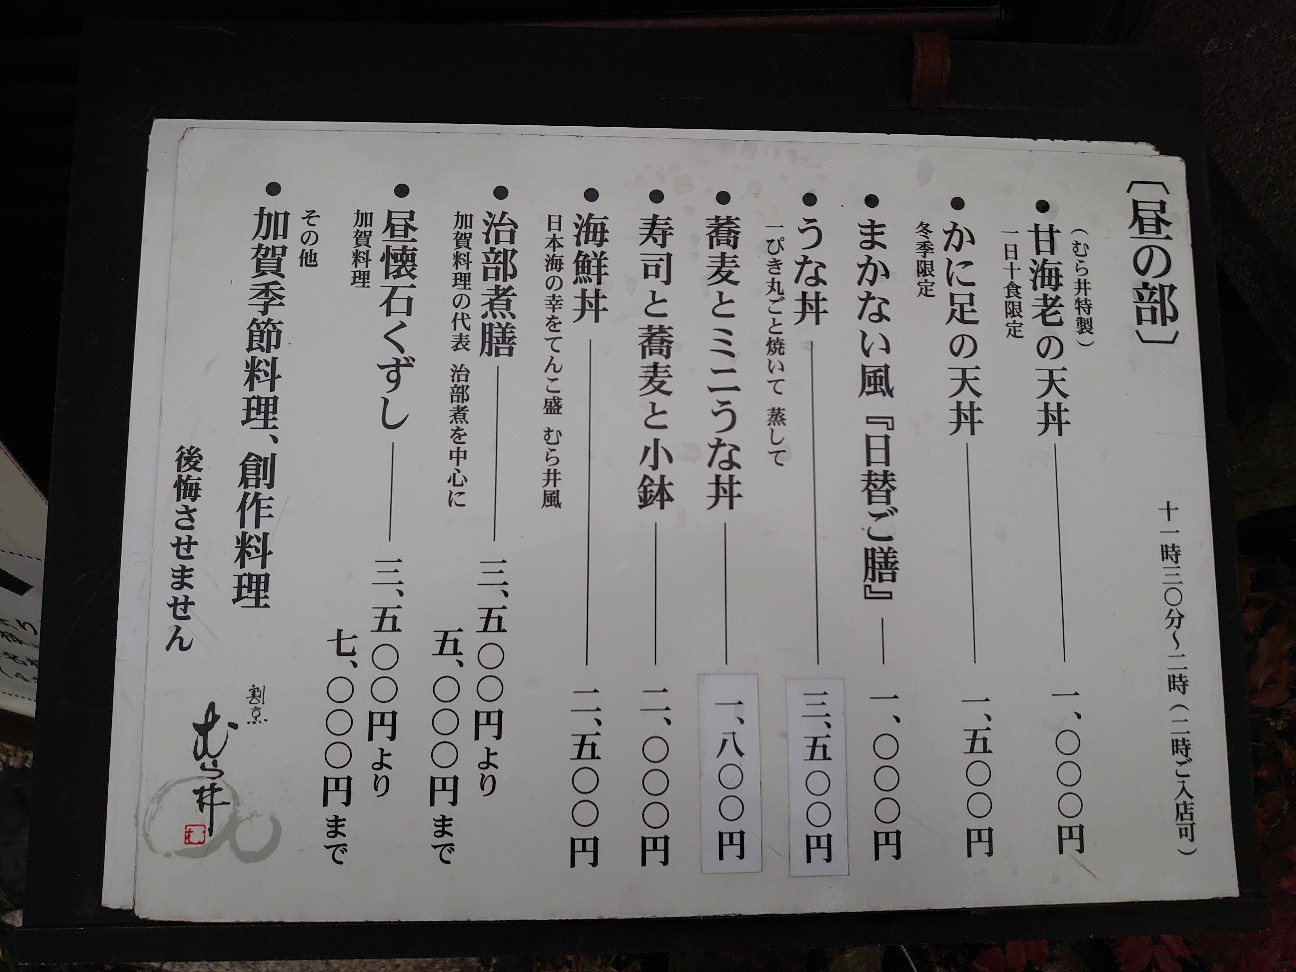 〔昼の部〕
十一時三〇分～二時（二時ご入店可）
（むら井特製）
●甘海老の天丼 一、〇〇〇円
一日十食限定
●かに足の天丼 一、五〇〇円
冬季限定
●まかない風『日替ご膳』 一、〇〇〇円
●うな丼 三、五〇〇円
一ぴき丸ごと焼いて 蒸して
●蕎麦とミニうな丼 一、八〇〇円
●寿司と蕎麦と小鉢 二、〇〇〇円
●海鮮丼 二、五〇〇円
日本海の幸をてんこ盛 むら井風
●治部煮膳 三、五〇〇円より
加賀料理の代表 治部煮を中心に
五、〇〇〇円まで
●昼懐石くずし 三、五〇〇円より
加賀料理
七、〇〇〇円まで
その他
●加賀季節料理、創作料理
後悔させません
割烹
むら井
む